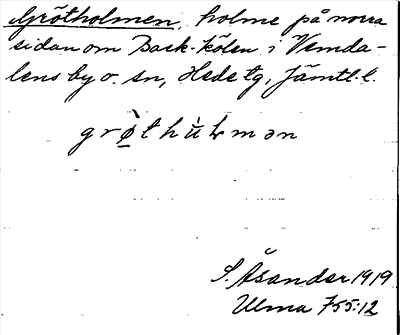 Grötholmen, holme på norra
sidan om Back-kölen i Vemda-
lens by o. sn, Hede tg, Jämtl. l.
grø̀thùɫmən
S. Åsander 1919
Ulma 755:12